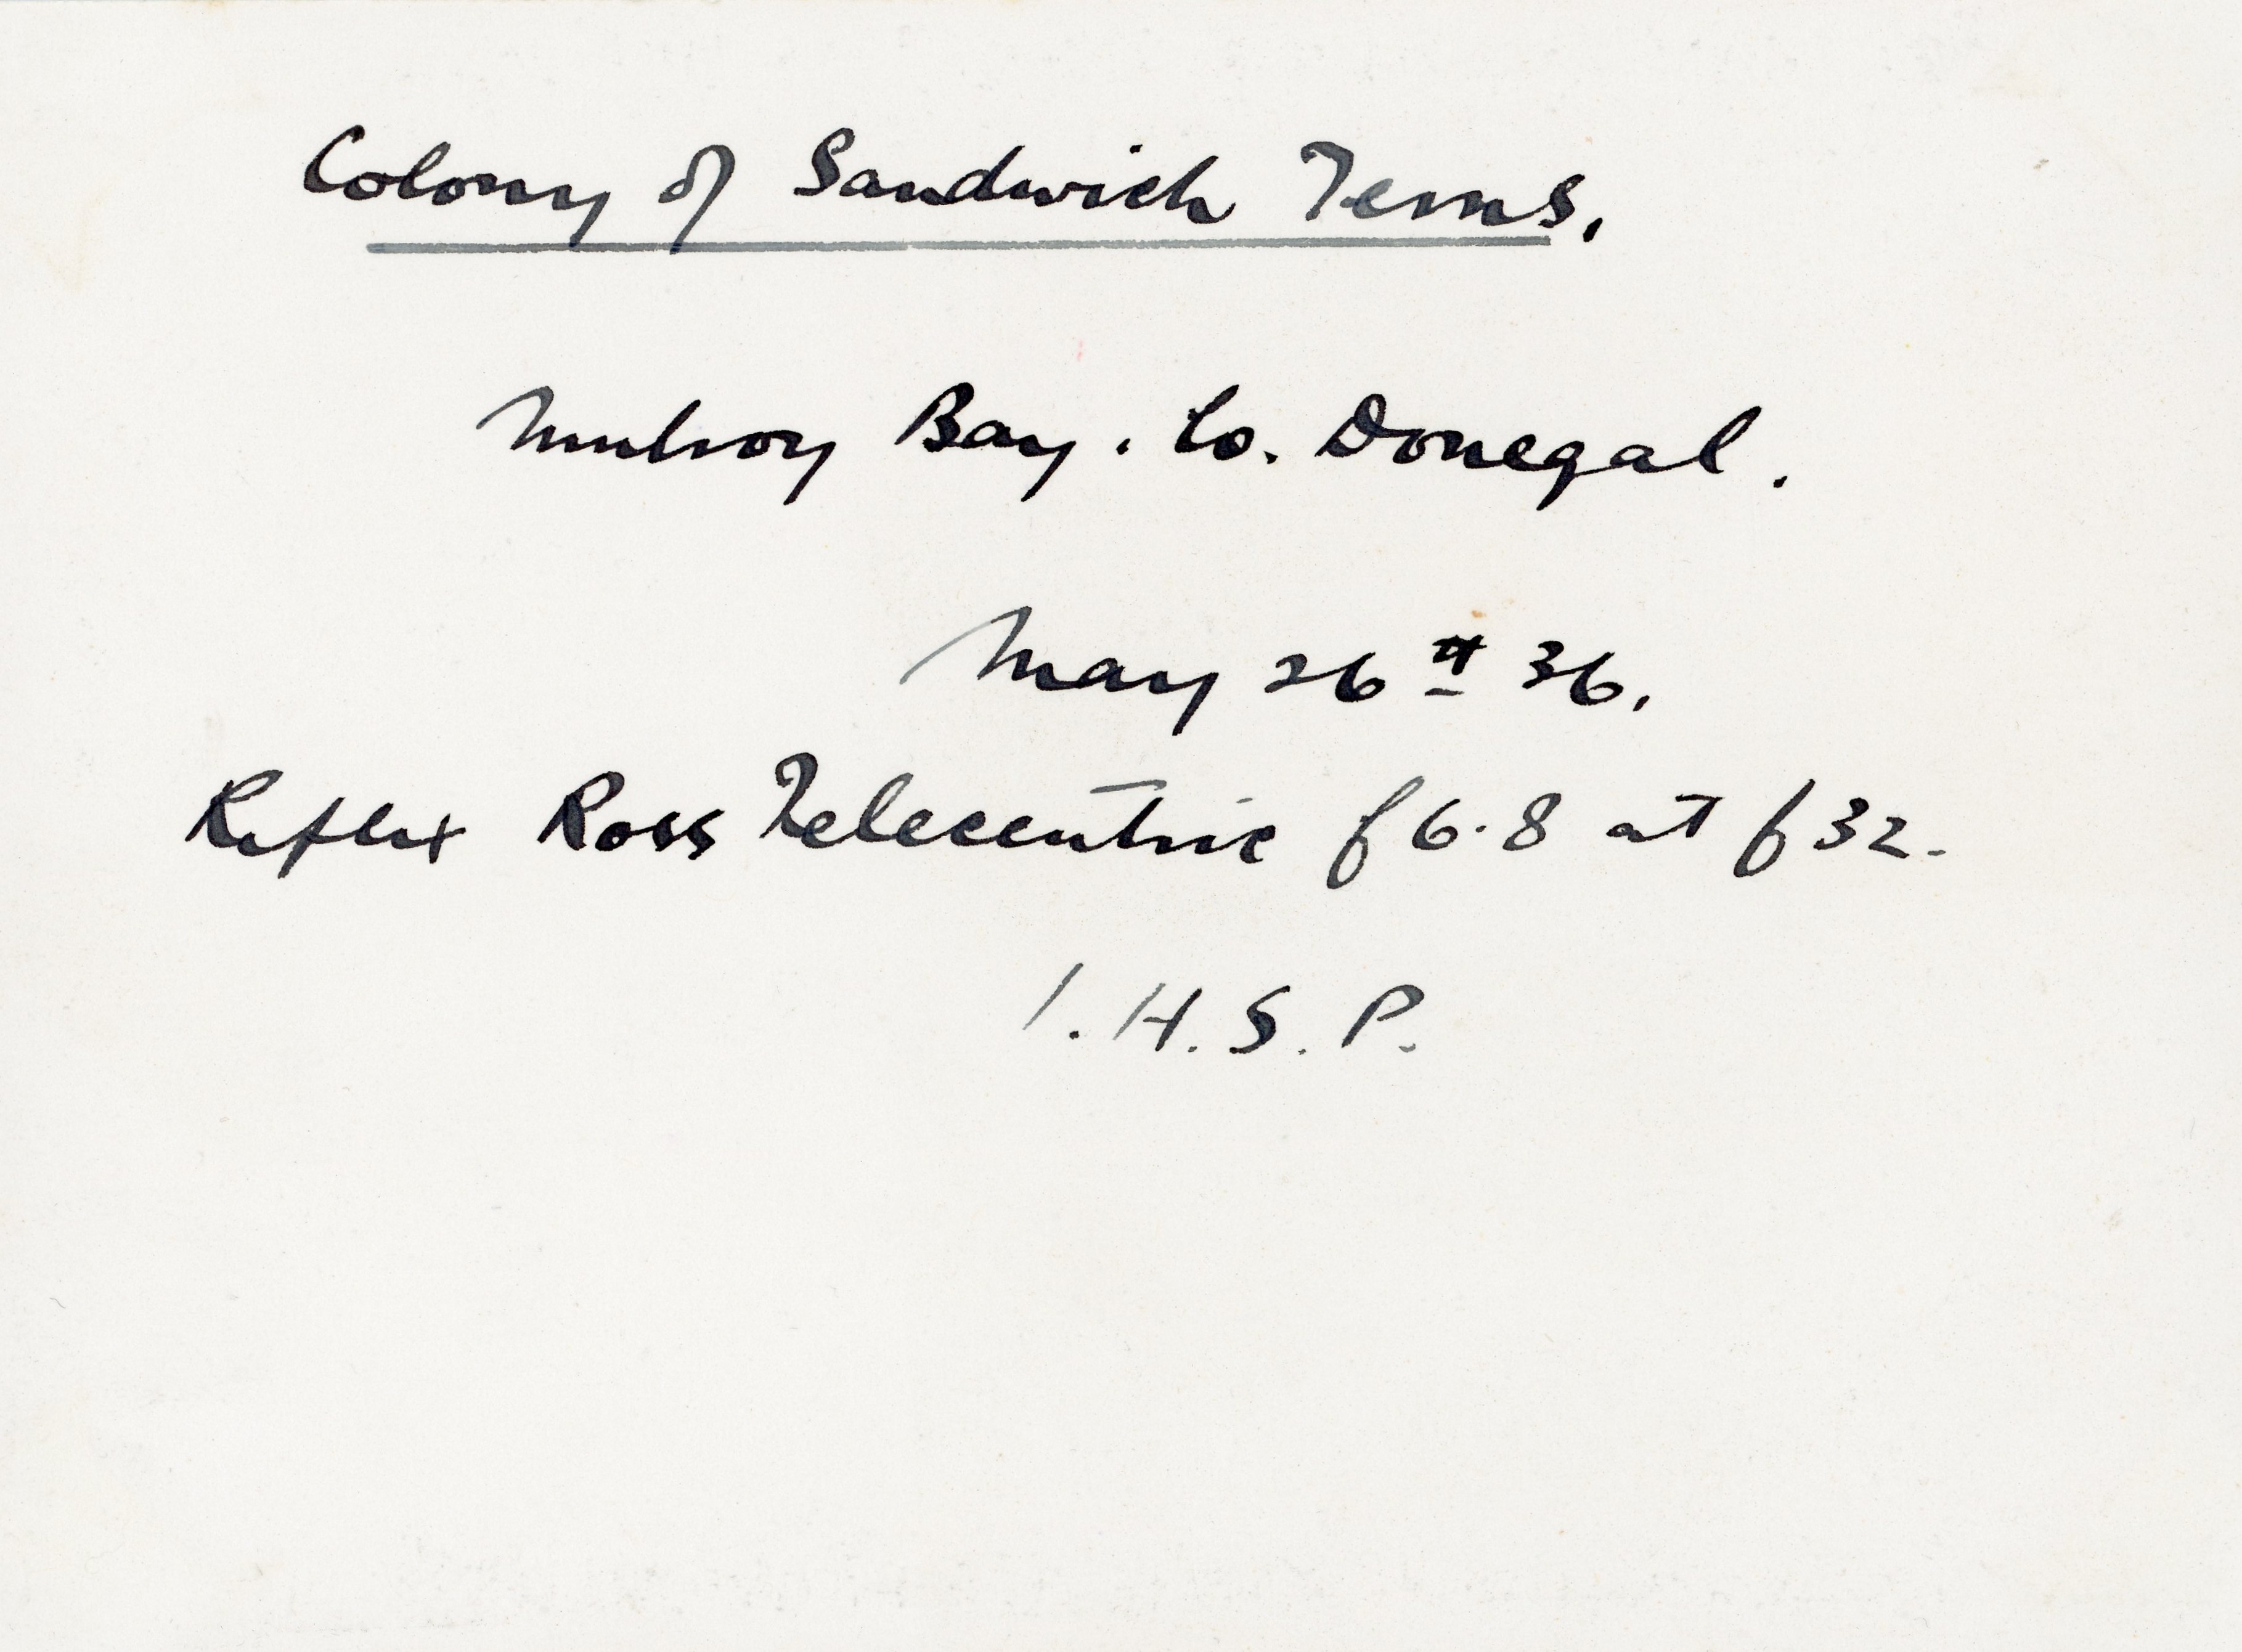 Colony of Sandwich Terns.
Mulroy Bay. Co. Donegal.
May 26th 36.
Reflex Ross Telecentric f6.8 at f32.
I.H.S.P.